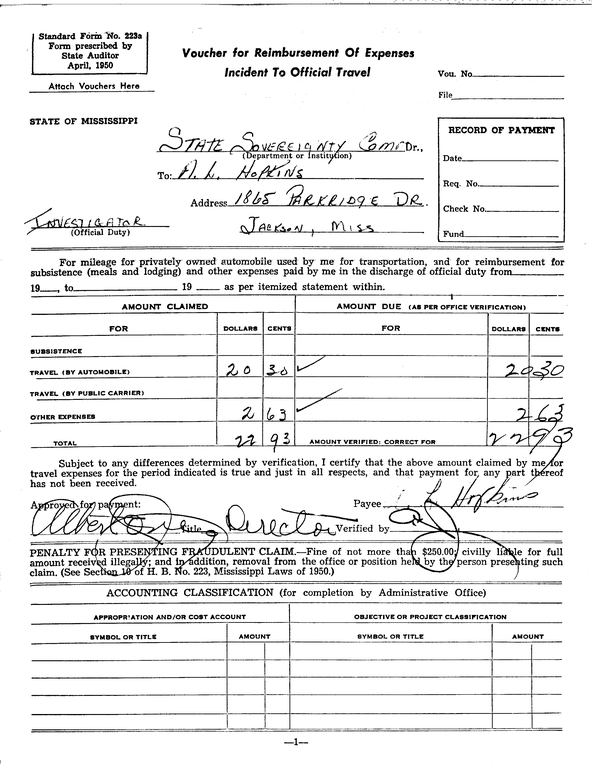 Standard Form No. 223a
Form prescribed by
State Auditor
April, 1950
Attach Vouchers Here
Voucher for Reimbursement Of Expenses
Incident To Official Travel
Vou. No.
File
STATE OF MISSISSIPPI
STATE SOVEREIGNTY Dr.,
(Department or Institution)
To: A. L. HOPKINS
Address 1865 PARKRIDGE DR.
INVESTIGATOR
(Official Duty)
JACKSON, MISS
RECORD OF PAYMENT
Date
Req. No.
Check No.
Fund
For mileage for privately owned automobile used by me for transportation, and for reimbursement for
subsistence (meals and lodging) and other expenses paid by me in the discharge of official duty from
19 , to 19 as per itemized statement within.
AMOUNT CLAIMED AMOUNT DUE (AS PER OFFICE VERIFICATION)
FOR DOLLARS CENTS FOR DOLLARS CENTS
SUBSISTENCE
TRAVEL (BY AUTOMOBILE) 20 30 20 30
TRAVEL (BY PUBLIC CARRIER)
OTHER EXPENSES 2 63 2 63
TOTAL 22 93 AMOUNT VERIFIED: CORRECT FOR 22 93
Subject to any differences determined by verification, I certify that the above amount claimed by me for
travel expenses for the period indicated is true and just in all respects, and that payment for any part thereof
has not been received.
Approved for payment: Payee L Hopkins
Albert Title Director Verified by
PENALTY FOR PRESENTING FRAUDULENT CLAIM.—Fine of not more than $250.00; civilly liable for full
amount received illegally; and in addition, removal from the office or position held by the person presenting such
claim. (See Section 10 of H. B. No. 223, Mississippi Laws of 1950.)
ACCOUNTING CLASSIFICATION (for completion by Administrative Office)
APPROPRIATION AND/OR COST ACCOUNT OBJECTIVE OR PROJECT CLASSIFICATION
SYMBOL OR TITLE AMOUNT SYMBOL OR TITLE AMOUNT
—1—